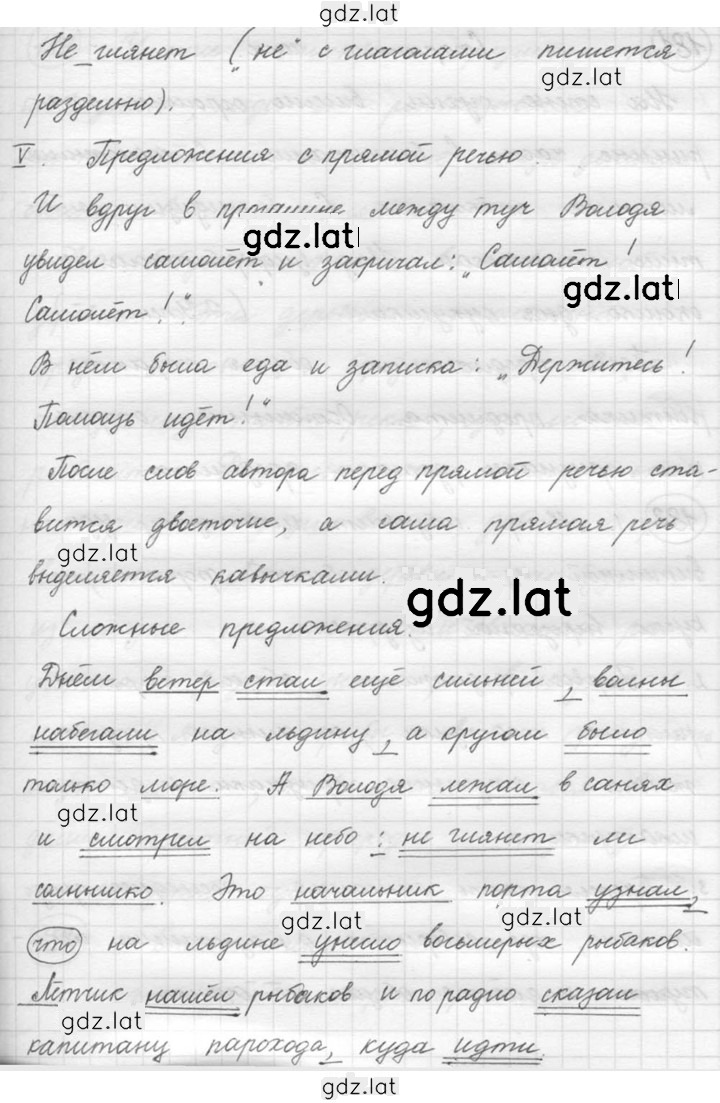 gdz.lat
Не глянет („не" с глаголами пишется
gdz.lat
раздельно).
V. Предложения с прямой речью.
И вдруг в между туч Володя
gdz.lat
увидел самолёт и закричал: „Самолёт!
gdz.lat
Самолёт!".
В нём была еда и записка: „Держитесь!
Помощь идёт!"
После слов автора перед прямой речью ста-
вится двоеточие, а сама прямая речь
gdz.lat
выделяется кавычками.
gdz.lat
Сложные предложения.
Днём ветер стал ещё сильней, волны
набегали на льдину, а кругом было
только море. А Володя лежал в санях
gdz.lat
и смотрел на небо: не глянет ли
солнышко. Это начальник порта узнал,
gdz.lat gdz.lat
что на льдине унесло восьмерых рыбаков.
Летчик нашёл рыбаков и по радио сказал
gdz.lat
капитану парохода, куда идти.
gdz.lat